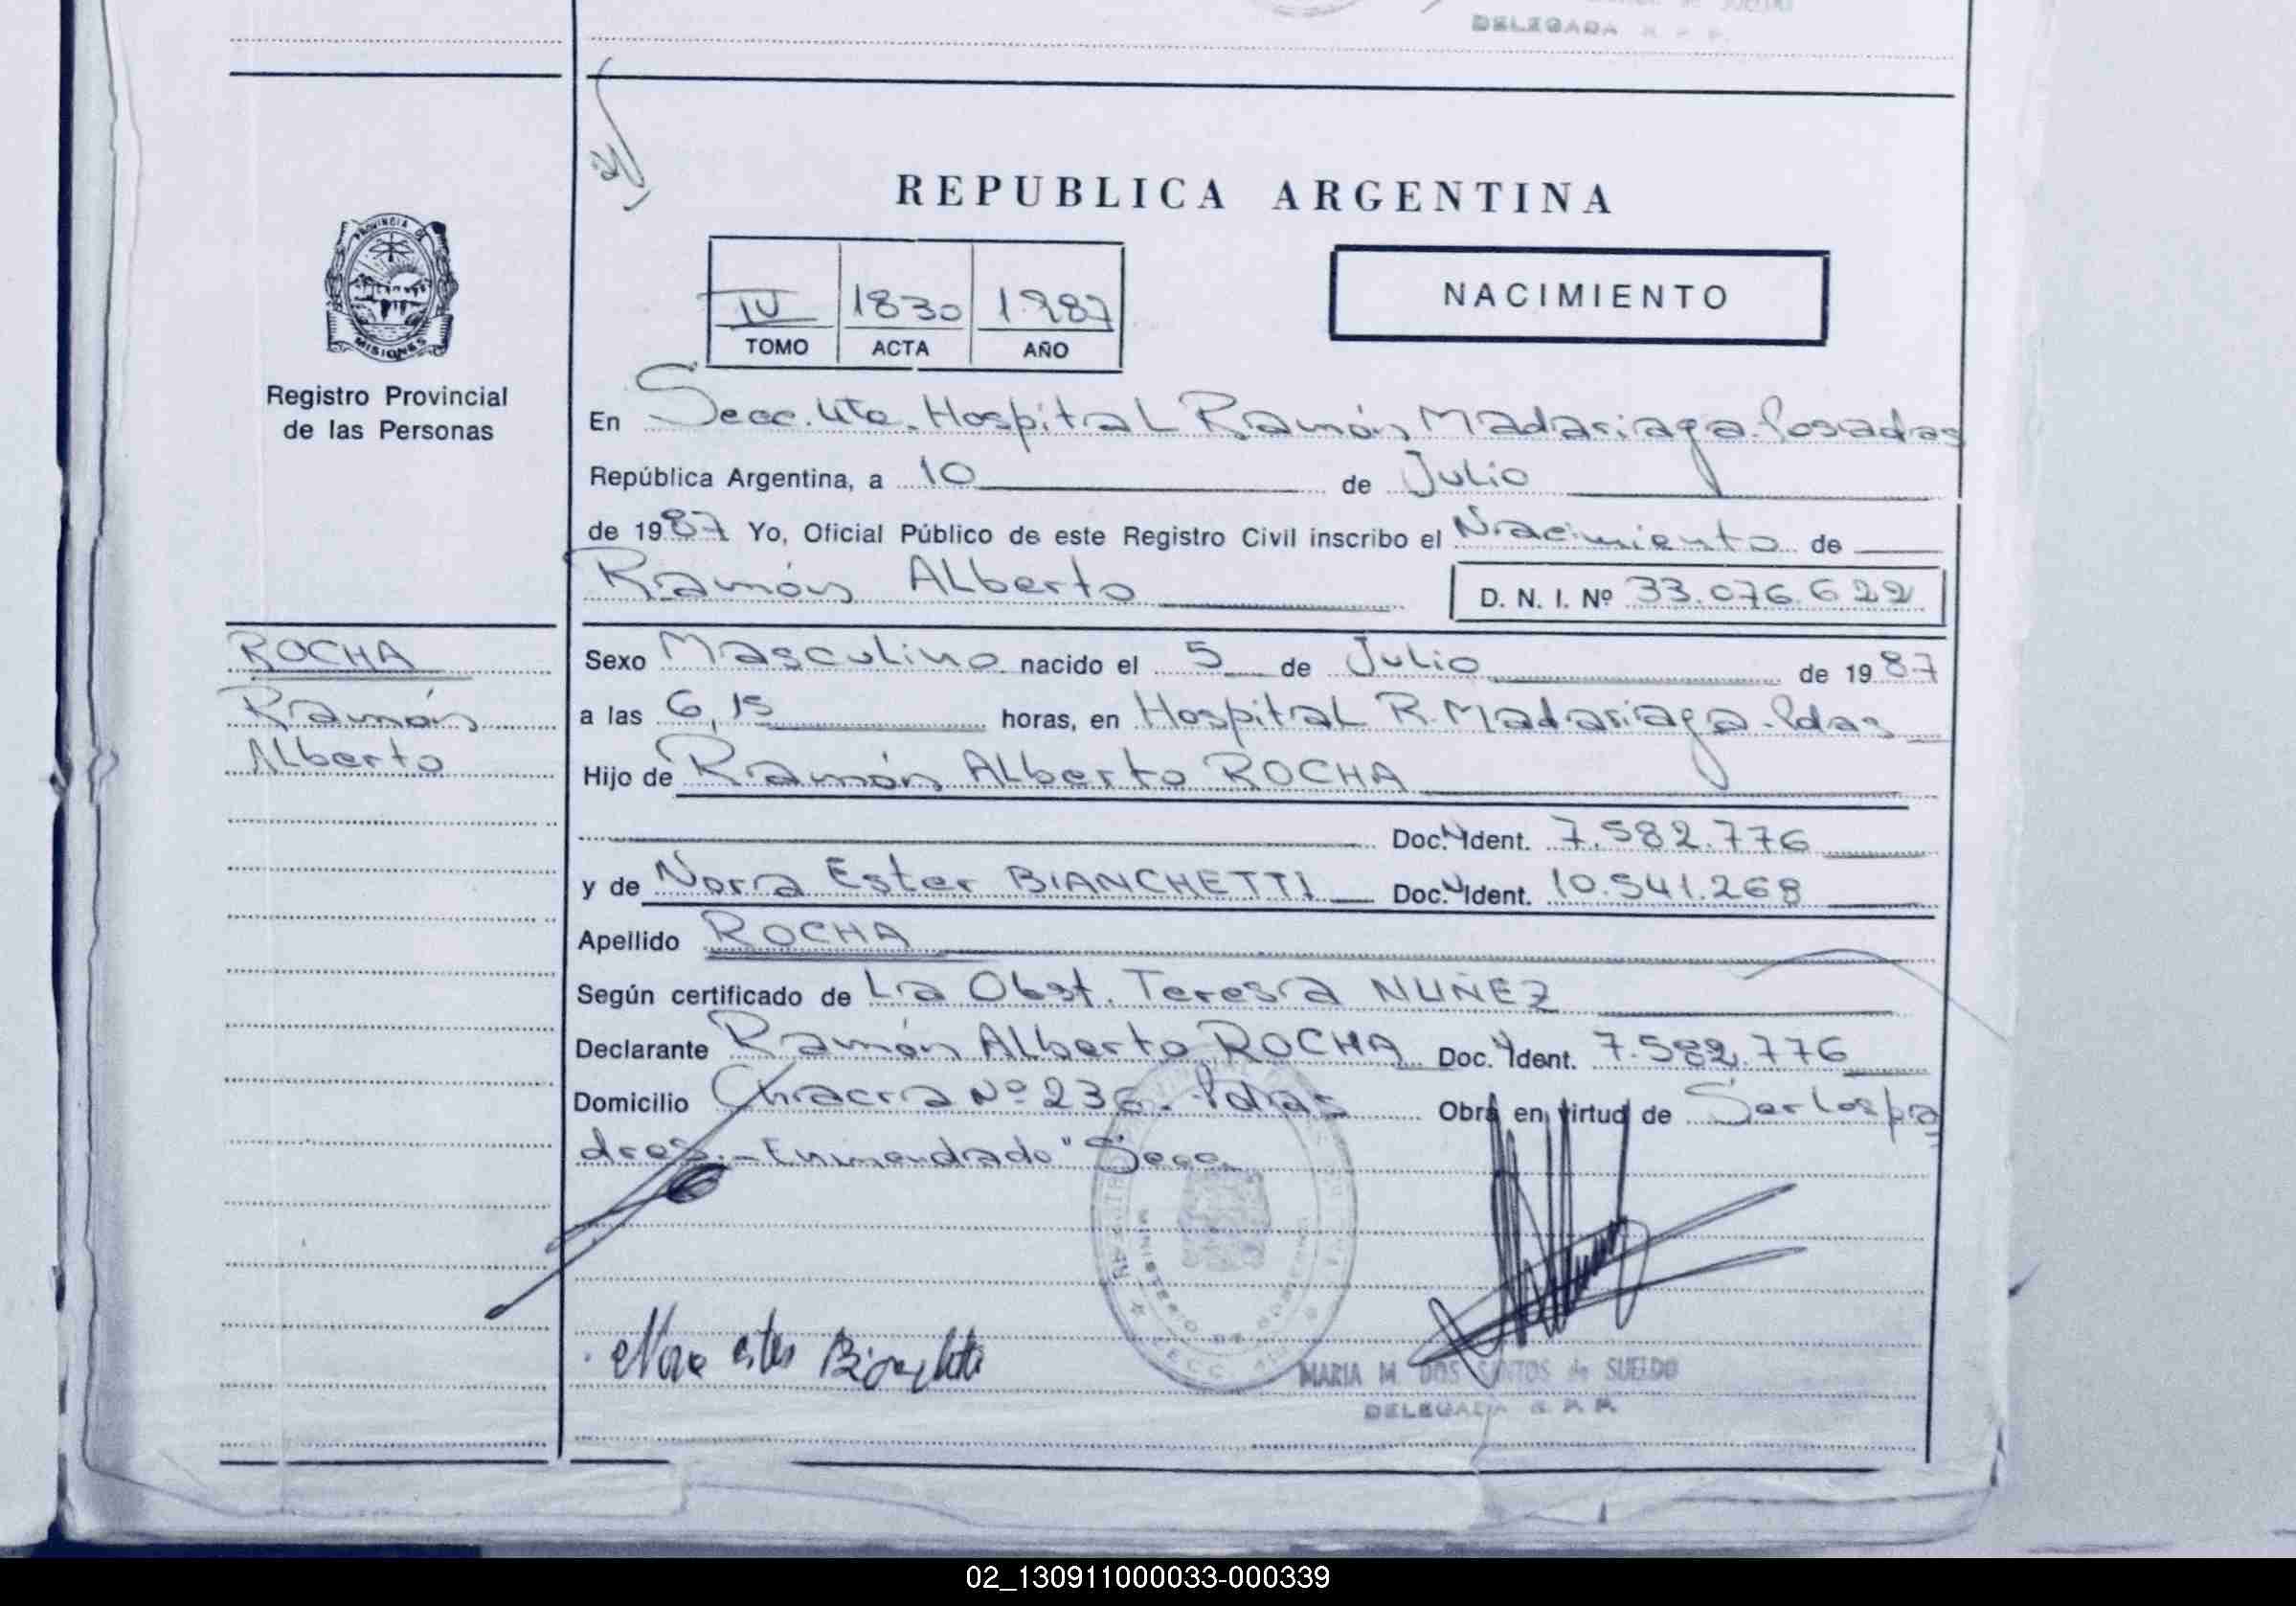 DELEGADA R. P. P.
REPUBLICA ARGENTINA
PROVINCIA DE
MISIONES
Registro Provincial
de las Personas
IV 1830 1.987
TOMO ACTA AÑO
NACIMIENTO
En Secc. 4ta. Hospital Ramón Madariaga. Posadas
República Argentina, a 10 de Julio
de 1987 Yo, Oficial Público de este Registro Civil inscribo el Nacimiento de
Ramón Alberto D. N. I. Nº 33.076.622
ROCHA
Ramón
Alberto
Sexo Masculino nacido el 5 de Julio de 1987
a las 6,15 horas, en Hospital R. Madariaga. Pdas
Hijo de Ramón Alberto ROCHA
Doc. Ident. 7.582.776
y de Norra Ester BIANCHETTI Doc. Ident. 10.541.268
Apellido ROCHA
Según certificado de La Obst. Teresa NUÑEZ
Declarante Ramón Alberto ROCHA Doc. Ident. 7.582.776
Domicilio Chacra Nº 236. Pdas Obra en virtud de Ser los pa
dres.- Enmendado "Secc.
MINISTERIO DE GOBIERNO
MARIA M. DOS SANTOS de SUELDO
DELEGADA R. P. P.
02_130911000033-000339